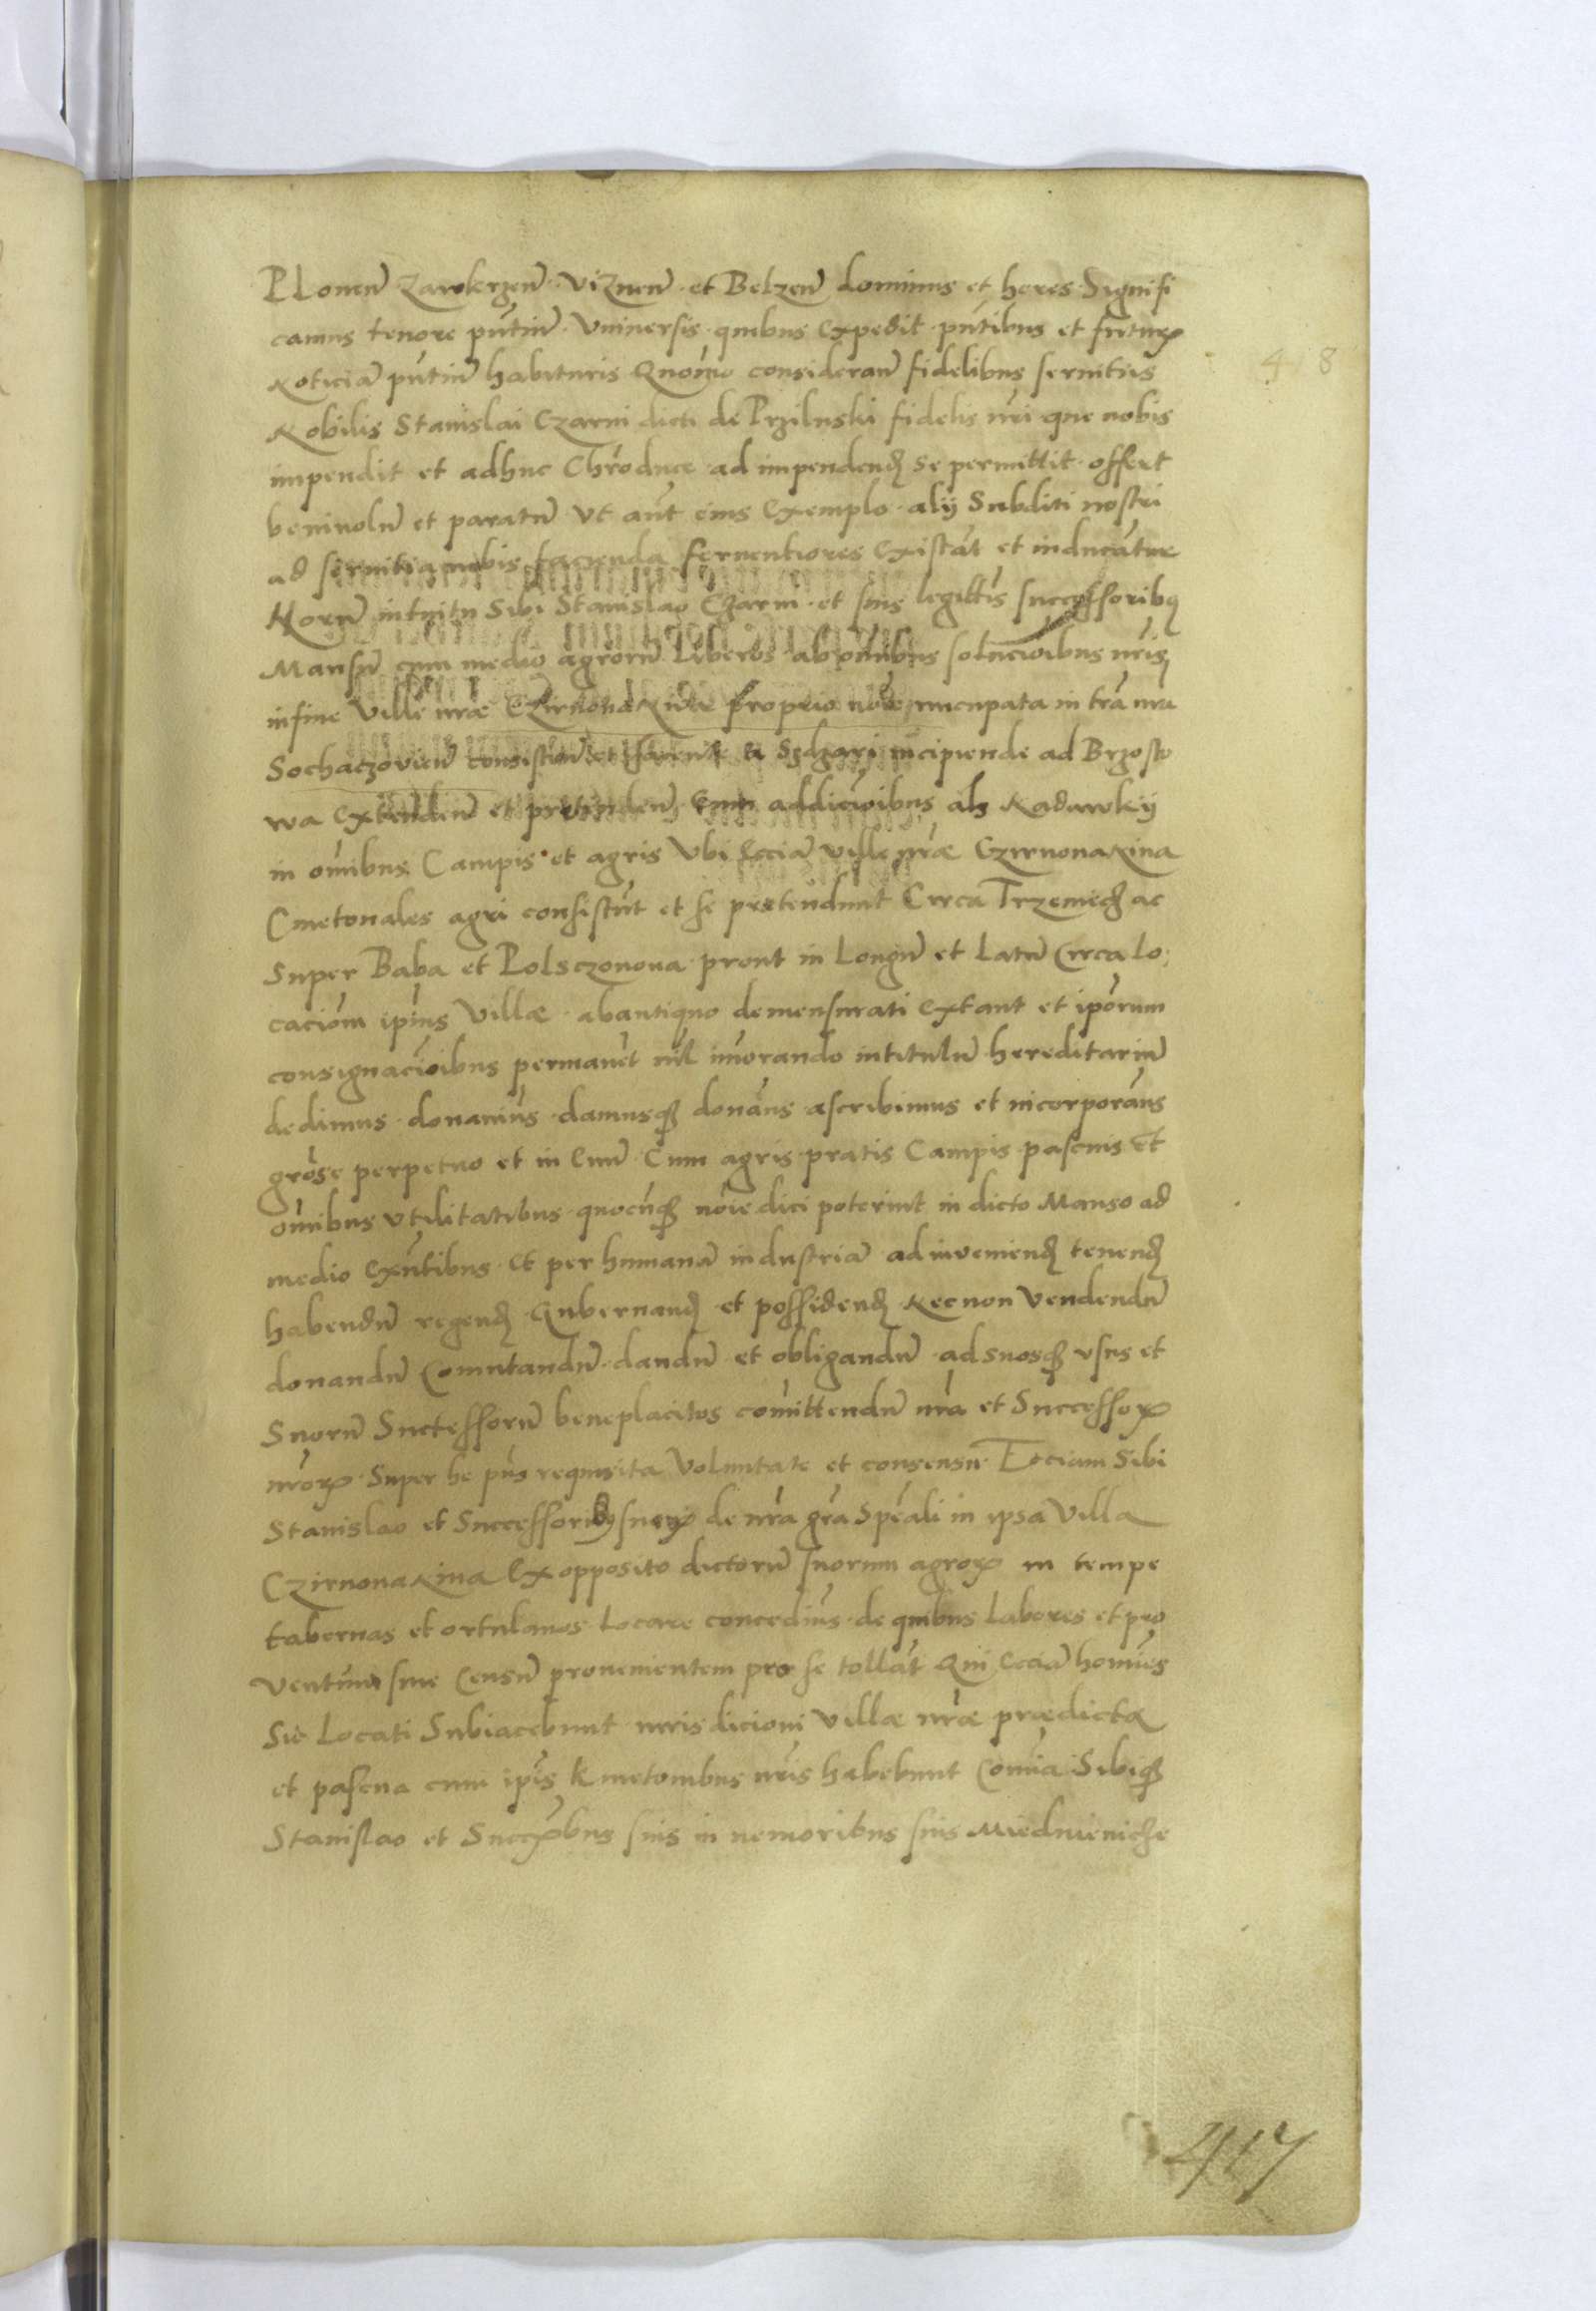 Plonen̄ Zawkrzen̄ Viznen̄ et Belzen̄ dominus et heres Signifi
camus tenore pn̄tiu᷑ Vniuersis quibus Expedit pn̄tibus et futurꝝ
Noticia᷑ pn̄tiu᷑ habituris Quōmo consideran̄ fidelibus seruitiis
4 8
Nobilis Stanislai Czarni dicti de Prziluski fidelis nr̄i que nobis
impendit et adhuc ad impendendꝭ se permittit offert
beniuolu᷑ et paratu᷑ Vt aūt eius Exemplo alij Subditi nostri
ad seruitia nobis facienda feruentiores Existāt et inducātur
Horu᷑ intuitu Sibi Stanislao Czarni et suis legitt̄is successoribꝫ
Mansu᷑ cum medio agroru᷑ Liberos ab om̄ibus solucioībus nr̄is
in fine Ville nr̄ae Czirnonanina proprio noīe nuncupata in tr̄a nr̄a
Sochaczouien̄ consisten̄ et a incipiende ad Brzosto
wa Extenden̄ et pretenden̄ Cum addicioībus als Nadawkij
in om̄ibus Campis et agris Vbi Eciā Ville nr̄ae Czirnonanina
Cmetonales agri consistūt et se pretendunt Circa ac
Super Baba et Polsczonona prout in Longu᷑ et Latu᷑ Circa lo
caciōm ip̄ius Villae ab antiquo demensurati Extant et ip̄orum
consignacioībus permanēt nil in titulu᷑ hereditariu᷑
dedimus donauim̄s damusqꝫ donām̄s ascribimus et incorporām̄s
grōse perpetuo et in Euu᷑ Cum agris pratis Campis pascuis et
om̄ibus vtilitatibus quocūqꝫ noīe dici poterint in dicto Manso ad
medio Exn̄tibus Et per humana᷑ industria᷑ ad inueniendꝭ tenendꝭ
habendu᷑ regendꝭ Gubernandꝭ et possidendꝭ Necnon Vendendu᷑
donandu᷑ Comutandu᷑ dandu᷑ et obligandu᷑ ad suosqꝫ vsus et
Suoru᷑ Successoru᷑ beneplacitos com̄ittendu᷑ nr̄a et Successorꝝ
nr̄orꝝ Super he requisita Voluntate et consensu Etciam Sibi
Stanislao et Successoribꝫ suorꝝ de nr̄a gr̄a Spēali in ipsa Villa
Czirnonanina Ex opposito dictoru᷑ suorum agrorꝝ in tempe
tabernas et ortulanos Locare concedim̄s de quibus Labores et pro
Ventum siue Censu᷑ prouenientem pro se tollāt Qui Ecia᷑ homīes
Sic Locati Subiacebunt iurisdicioni Villae nr̄ae praedicta
et pascua cum ip̄is Kmetonibus nr̄is habebunt Com̄ia Sibiqꝫ
Stanislao et Succꝝbus suis in nemoribus suis Miednieniche
417